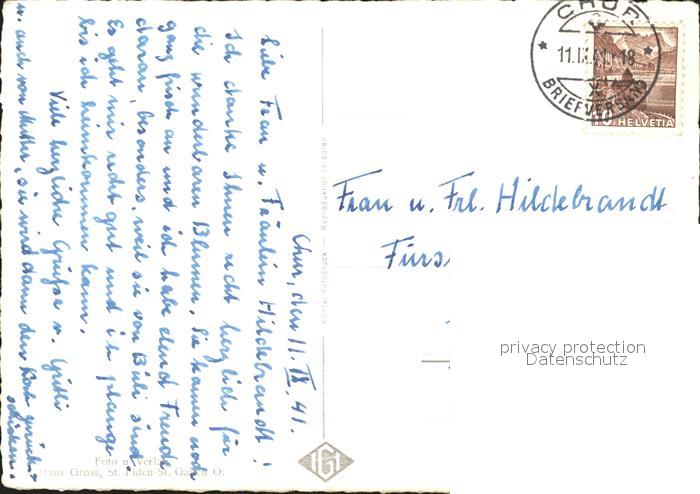 Chur, den 11. IX. 41.
Liebe Frau u. Fräulein Hildebrandt!
Ich danke Ihnen recht herzlich für
die wunderbaren Blumen. Sie kamen noch
ganz frisch an und ich habe elend Freude
daran, besonders, weil sie von Büli sind.
Es geht mir recht gut und ist plange
bis ich heimkommen kann.
Viele herzliche Grüsse v. Gritli
u. auch von Mutter, sie wird dann den Korb zurück-
schicken.
Foto u. Verlag
Hans Gross, St. Fiden-St. Gallen O.
Echte Photodruck — Reproduktion verboten
CHUR
11.IX.41.18
BRIEFVERSAND
10 HELVETIA
Frau u. Frl. Hildebrandt
Fürs
privacy protection
Datenschutz